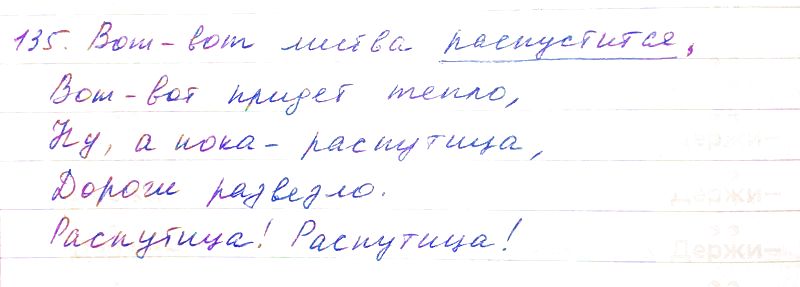 135. Вот-вот листва распустится,
Вот-вот придет тепло,
Ну, а пока - распутица,
Дороги развезло.
Распутица! Распутица!